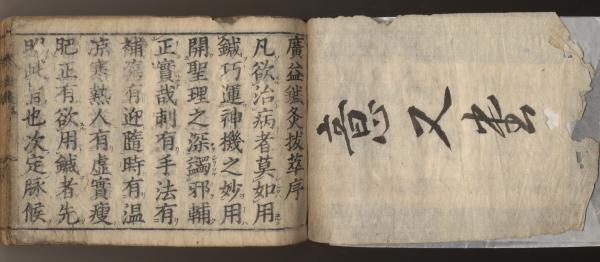 意又
廣益鍼灸拔萃序
凡欲治病者莫如用
鍼巧運神機之妙用
開聖理之深蠲邪輔
正實哉刺有手法有
補瀉有迎隨時有温
凉寒熱人有虚實瘦
肥正有欲用鍼者先
此也次定脉候